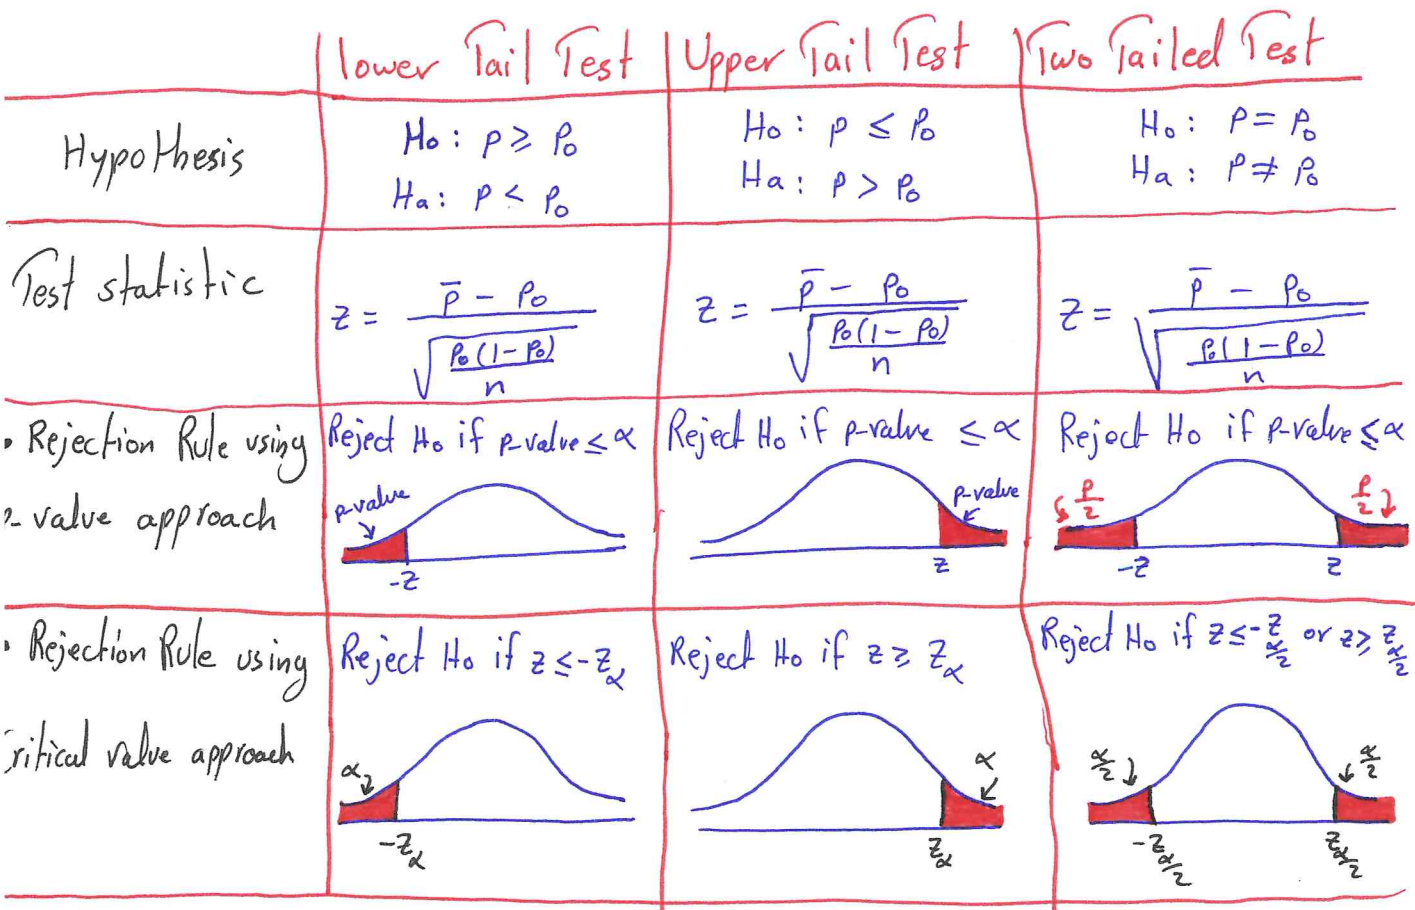 lower Tail Test
Upper Tail Test
Two Tailed Test
Hypothesis
Ho: p ≥ Po
Ha: p < Po
Ho: p ≤ Po
Ha: p > Po
Ho: p = Po
Ha: p ≠ Po
Test statistic
z = (p̄ - Po) / √(Po(1-Po)/n)
z = (p̄ - Po) / √(Po(1-Po)/n)
z = (p̄ - Po) / √(Po(1-Po)/n)
• Rejection Rule using
- value approach
Reject Ho if p-value ≤ α
p-value
-z
Reject Ho if p-value ≤ α
p-value
z
Reject Ho if p-value ≤ α
p/2
p/2
-z
z
• Rejection Rule using
ritical value approach
Reject Ho if z ≤ -Zα
α
-Zα
Reject Ho if z ≥ Zα
α
Zα
Reject Ho if z ≤ -Zα/2 or z ≥ Zα/2
α/2
α/2
-Zα/2
Zα/2